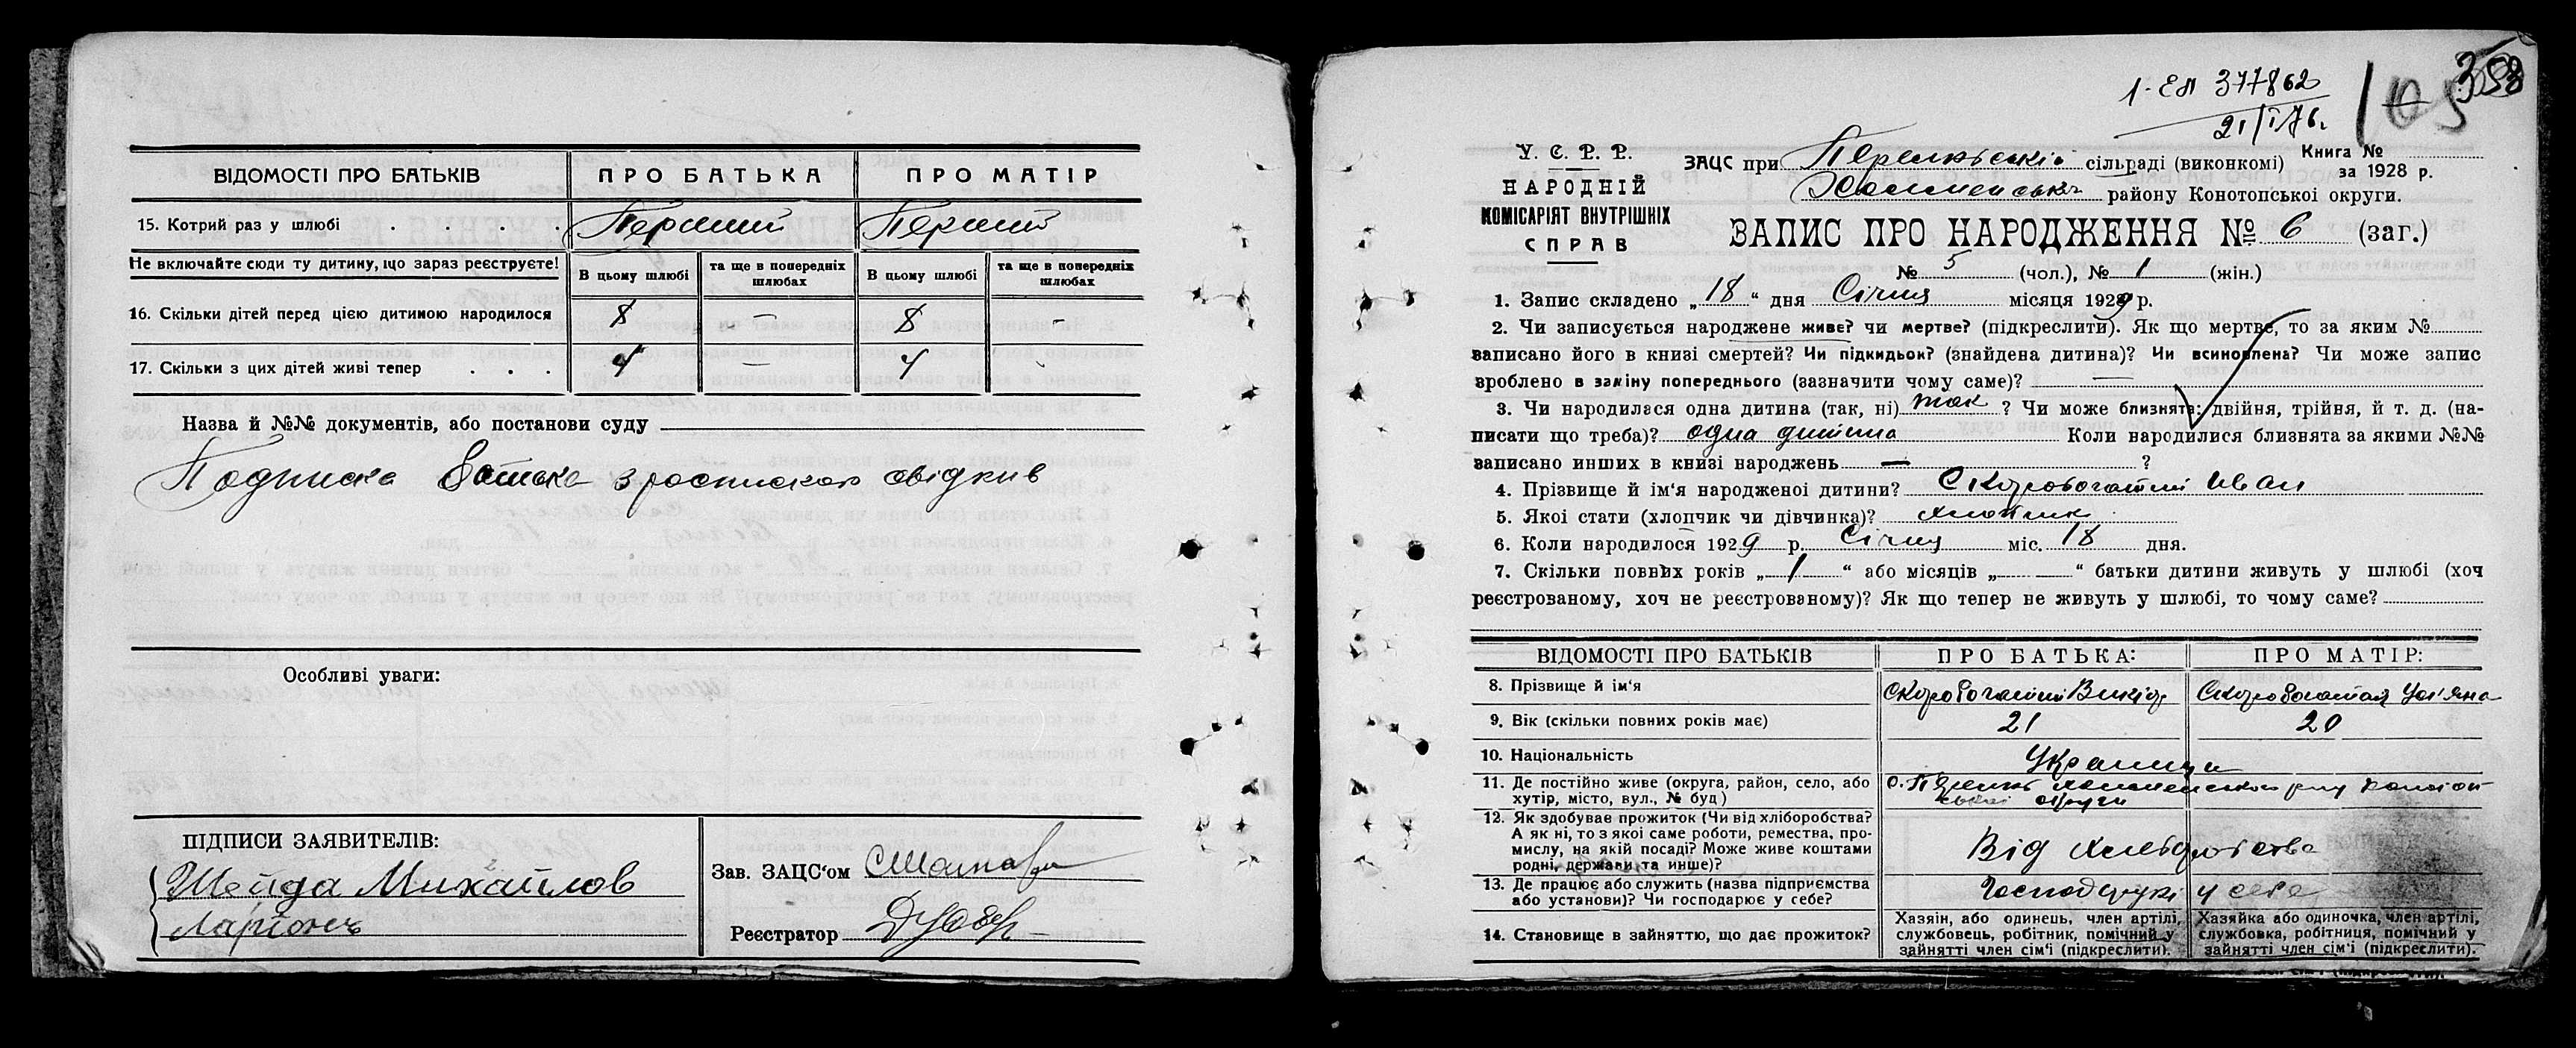 ВІДОМОСТІ ПРО БАТЬКІВ ПРО БАТЬКА ПРО МАТІР
15. Котрий раз у шлюбі . . . . Перший Перший
Не включайте сюди ту дитину, що зараз реєструєте! В цьому шлюбі та ще в попередніх шлюбах В цьому шлюбі та ще в попередніх шлюбах
16. Скільки дітей перед цією дитиною народилося 8 — 8 —
17. Скільки з цих дітей живі тепер . . . 4 — 4 -
Назва й №№ документів, або постанови суду
Подписка батька з роспискою свідків
Особливі уваги:
ПІДПИСИ ЗАЯВИТЕЛІВ:
Шейда Михайлов
Ларіонъ
Зав. ЗАЦС'ом
Реєстратор
1-ЕЛ 377862
21/I 76.
105
358
У. С. Р. Р.
НАРОДНІЙ
КОМІСАРІЯТ ВНУТРІШНІХ
СПРАВ
ЗАЦС при сільраді (виконкомі) Книга №
за 1928 р.
району Конотопської округи.
ЗАПИС ПРО НАРОДЖЕННЯ № 6 (заг.)
№ 5 (чол.), № 1 (жін.)
1. Запис складено „18“ дня Січня місяця 1929 р.
2. Чи записується народжене живе? чи мертве? (підкреслити). Як що мертве, то за яким №
записано його в книзі смертей? Чи підкидьок? (знайдена дитина)? Чи всиновлена? Чи може запис
зроблено в заміну попереднього (зазначити чому саме)? —
3. Чи народилася одна дитина (так, ні) так ? Чи може близнята: двійня, трійня, й т. д. (на-
писати що треба)? одна дитина Коли народилися близнята за якими №№
записано инших в книзі народжень — ?
4. Прізвище й ім'я народженої дитини? Скоробогатий Иван
5. Якої стати (хлопчик чи дівчинка)? хлопчик
6. Коли народилося 1929 р. Січня міс. 18 дня.
7. Скільки повних років „1“ або місяців „—“ батьки дитини живуть у шлюбі (хоч
реєстрованому, хоч не реєстрованому)? Як що тепер не живуть у шлюбі, то чому саме?
ВІДОМОСТІ ПРО БАТЬКІВ ПРО БАТЬКА: ПРО МАТІР:
8. Прізвище й ім'я Скоробогатий Викто Скоробогатая Ул'яна
9. Вік (скільки повних років має) 21 20
10. Національність Українці
11. Де постійно живе (округа, район, село, або
хутір, місто, вул., № буд) с. району Конотоп
ської округи
12. Як здобуває прожиток (Чи від хліборобства?
А як ні, то з якої саме роботи, ремества, про-
мислу, на якій посаді? Може живе коштами
родні, держави та инше)? Від хліборобства
13. Де працює або служить (назва підприємства
або установи)? Чи господарює у себе? Господарює у себе
14. Становище в зайняттю, що дає прожиток? Хазяїн, або одинець, член артілі,
службовець, робітник, помічний у
зайнятті член сім'ї (підкреслити). Хазяйка або одиночка, член артілі,
службовка, робітниця, помічний у
зайнятті член сім'ї (підкреслити).